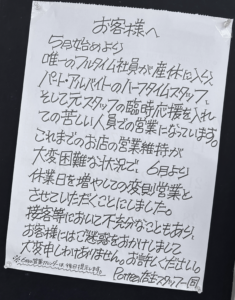 お客様へ
5月始めより
唯一のフルタイム社員が産休に入り、
パート・アルバイトのハーフタイムスタッフ、
そして元スタッフの臨時応援を入れ
ての苦しい人員での営業になっています。
これまでのお店の営業維持が
大変困難な状況で、6月より
休業日を増やしての変則営業と
させていただくことにしました。
接客等において不充分なこともあり、
お客様にはご迷惑をおかけしまして
大変申しわけありません。お許しください。
スタッフ一同